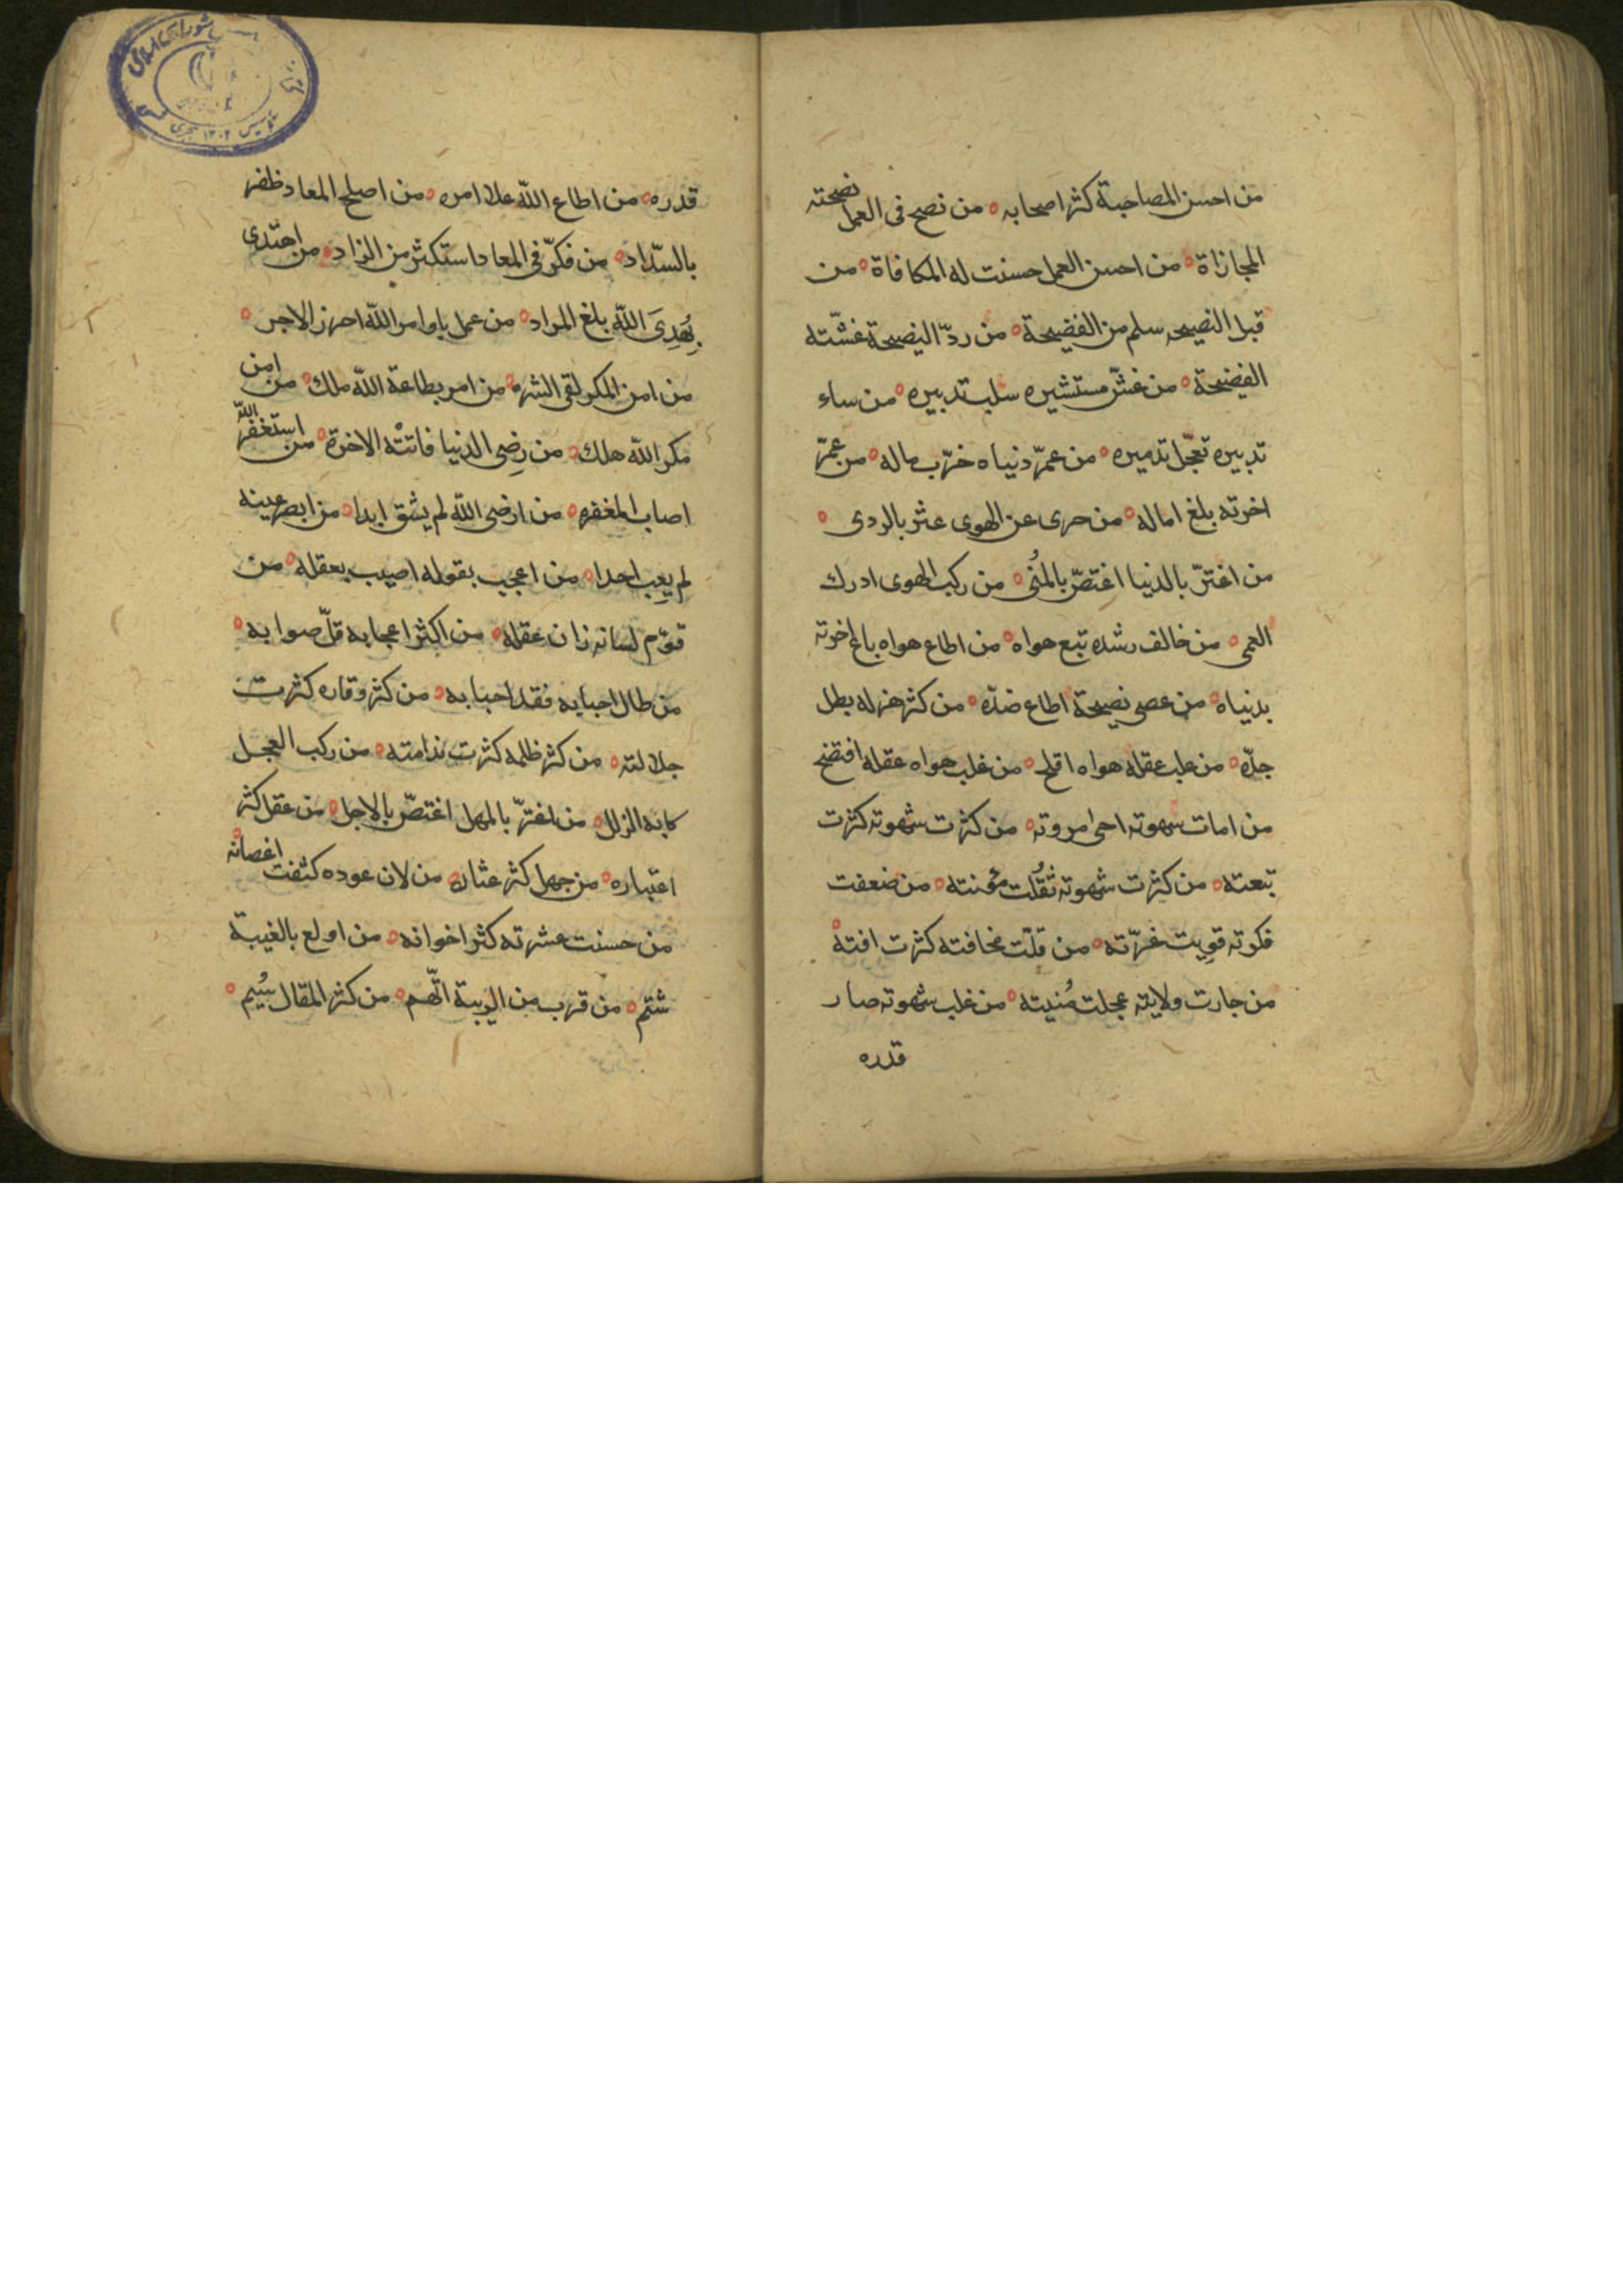 من احسن المصاحبة كثر اصحابه ه من نصح فى العمل نصحته
المجازاة ه من احسن العمل حسنت له المكافاة ه من
قبل النصيحه سلم من الفضيحة ه من ردّ النصيحة غشّته
الفضيحة ه من غشّ مستشيره سلب تدبيره ه من ساء
تدبيره تعجّل تدميره ه من عمّر دنياه خرّب ماله ه من عمّر
اخرته بلغ اماله ه من حرى عن الهوى عثر بالردى ه
من اغترّ بالدنيا اغتصّ بالمنُى ه من ركب الهوى ادرك
العمى ه من خالف رشده تبع هواه ه من اطاع هواه باع اخرته
بدنياه ه من عصى نصيحة اطاع ضدّه ه من كثر هزله بطل
جدّه ه من غلب عقله هواه افلح ه من غلب هواه عقله افتضح
من امات شهوته احى مروته ه من كثرت شهوته كثرت
تبعته ه من كثرت شهوته ثقُلت مؤنته ه من ضعفت
فكرته قويت غرّته ه من قلّت مخافته كثرت افته ه
من جارت ولايته عجلت مُنيته ه من غلب شهوته صار
قدره
قدره ه من اطاع اللّه علا امره ه من اصلح المعاد ظفر
بالسّداد ه من فكّر فى المعاد استكثر من الزاد ه من اهتدى
بِهُدِىَ اللّه بلغ المراد ه من عمل باوامر اللّه احرز الاجر ه
من امن المكر لقى الشر ه من امر بطاعة اللّه ملك ه من امن
مكر اللّه هلك ه من رِضى الدنيا فاتتْه الاخرة ه من استغفر اللّه
اصاب المغفره ه من ارضى اللّه لم يشق ابدا ه من ابصر عينه
لم يعِب احدا ه من اعجب بقوله اصيب بعقله ه من
قوّم لسانه زان عقله ه من اكثر اعجابه قلّ صوابه ه
من طال احبابه فقد احبابه ه من كثر وقاره كثرت
جلالته ه من كثر ظلمه كثرت ندامته ه من ركب العجل
كابه الزلل ه من اغترّ بالمهل اغتصّ بالاجل ه من عقل كثر
اعتباره ه من جهل كثر عثاره ه من لان عوده كثفت اغصانه ه
من حسنت عشرته كثر اخوانه ه من اولع بالغيبة
شتم ه من قرب من الريبة اتّهم ه من كثر المقال سُيم ه